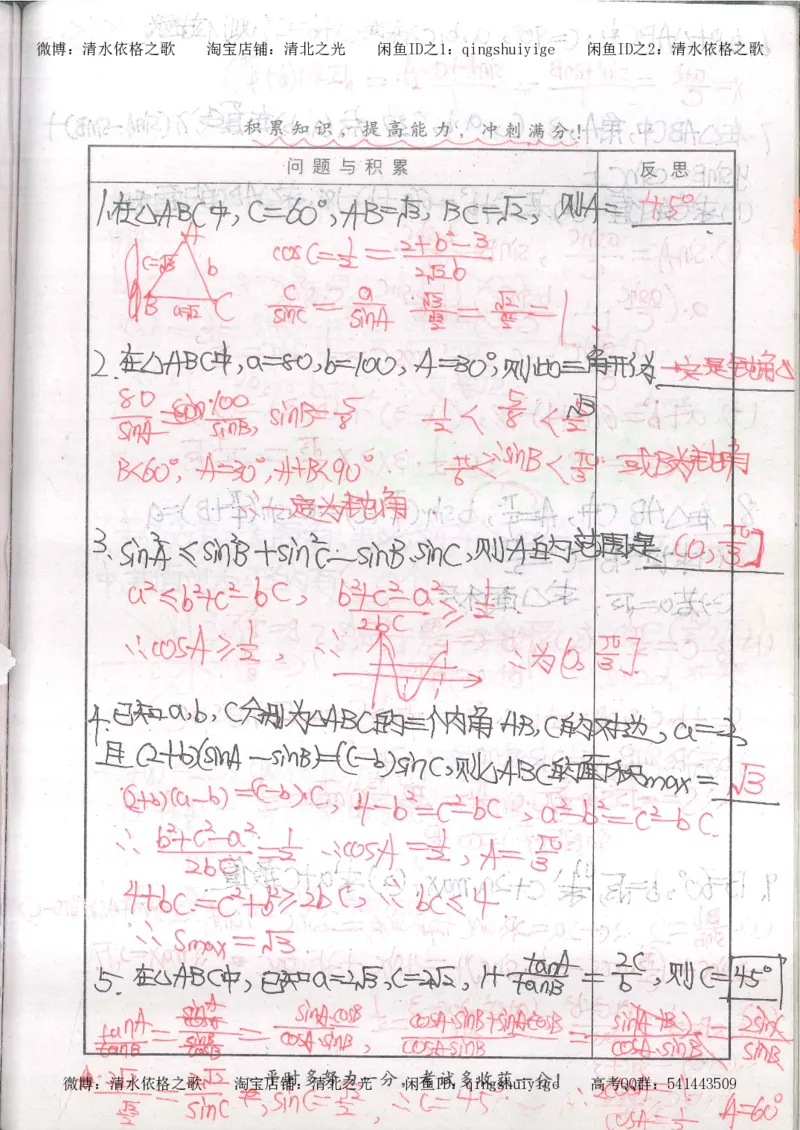 微博：清水依格之歌 淘宝店铺：清北之光 闲鱼ID之1：qingshuiyige 闲鱼ID之2：清水依格之歌
积累知识，提高能力，冲刺满分！
问题与积累 反思
1.在△ABC中，C=60°，AB=√3，BC=√2，则A= 45°
A
c=√3 b
B a=√2 C
cosC=1/2=(2+b²-3)/(2√2b)
c/sinC = a/sinA
2.在△ABC中，a=80，b=100，A=30°，则此三角形为 一定是钝角△
80/sinA = 100/sinB，sinB=5/8 1/2<5/8<√3/2
B<60°，A=30°，A+B<90° π/6<sinB<π/3 或B为钝角
∴一定为钝角
3.sin²A≤sin²B+sin²C-sinB·sinC，则A的范围是 (0,π/3]
a²≤b²+c²-bC，(b²+c²-a²)/2bC≥1/2
∴cosA≥1/2，∴ ∴为(0,π/3]
4.已知a,b,C分别为△ABC的三个内角AB,C的对边，a=2，
且(2+b)(sinA-sinB)=(C-b)sinC，则△ABC的面积max= √3
(2+b)(a-b)=(C-b)·C，4-b²=C²-bC，a²-b²=C²-bC.
∴(b²+c²-a²)/2bC=1/2 ∴cosA=1/2，A=π/3
4+bC=C²+b²≥2bC，∴bC≤4
∴Smax=√3
5.在△ABC中，已知a=2√3，C=2√2，1+tanA/tanB=2C/b，则C=45°
tanA/tanB = = sinA·cosB/cosA·sinB，(cosA·sinB+sinA·cosB)/cosA·sinB = sin(A+B)/cosA·sinB = 2sinC/sinB
平时多努力一分，考试多收获一分！
微博：清水依格之歌 淘宝店铺：清北之光 闲鱼ID：qingshuiyige 高考QQ群：541443509
sinC=√2/2，∴C=45° cosA=1/2 A=60°